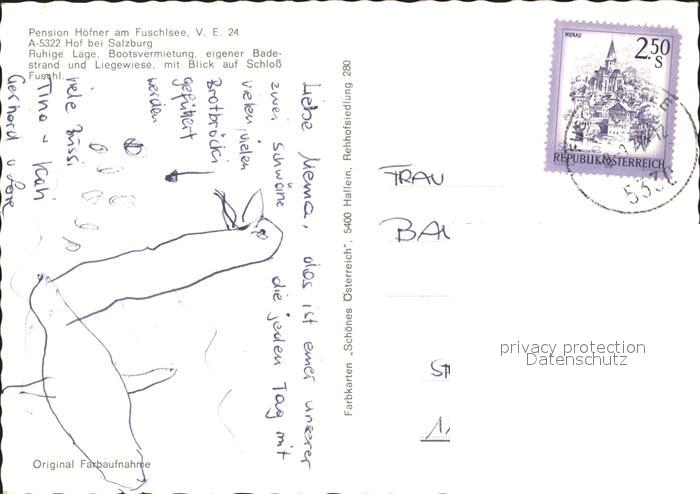 Pension Höfner am Fuschlsee, V. E. 24
A-5322 Hof bei Salzburg
Ruhige Lage, Bootsvermietung, eigener Bade-
strand und Liegewiese, mit Blick auf Schloß
Fuschl.
Liebe Mema, das ist einer unserer
zwei Schwäne die jeden Tag mit
vielen, vielen
Brotbröcki
gefüttert
werden
viele Bussi
Tina + Kati
Gerhard u Lore
Original Farbaufnahme
Farbkarten „Schönes Österreich", 5400 Hallein, Rehhofsiedlung 280
MURAU
2.50
S
REPUBLIK ÖSTERREICH
FRAU
privacy protection
Datenschutz